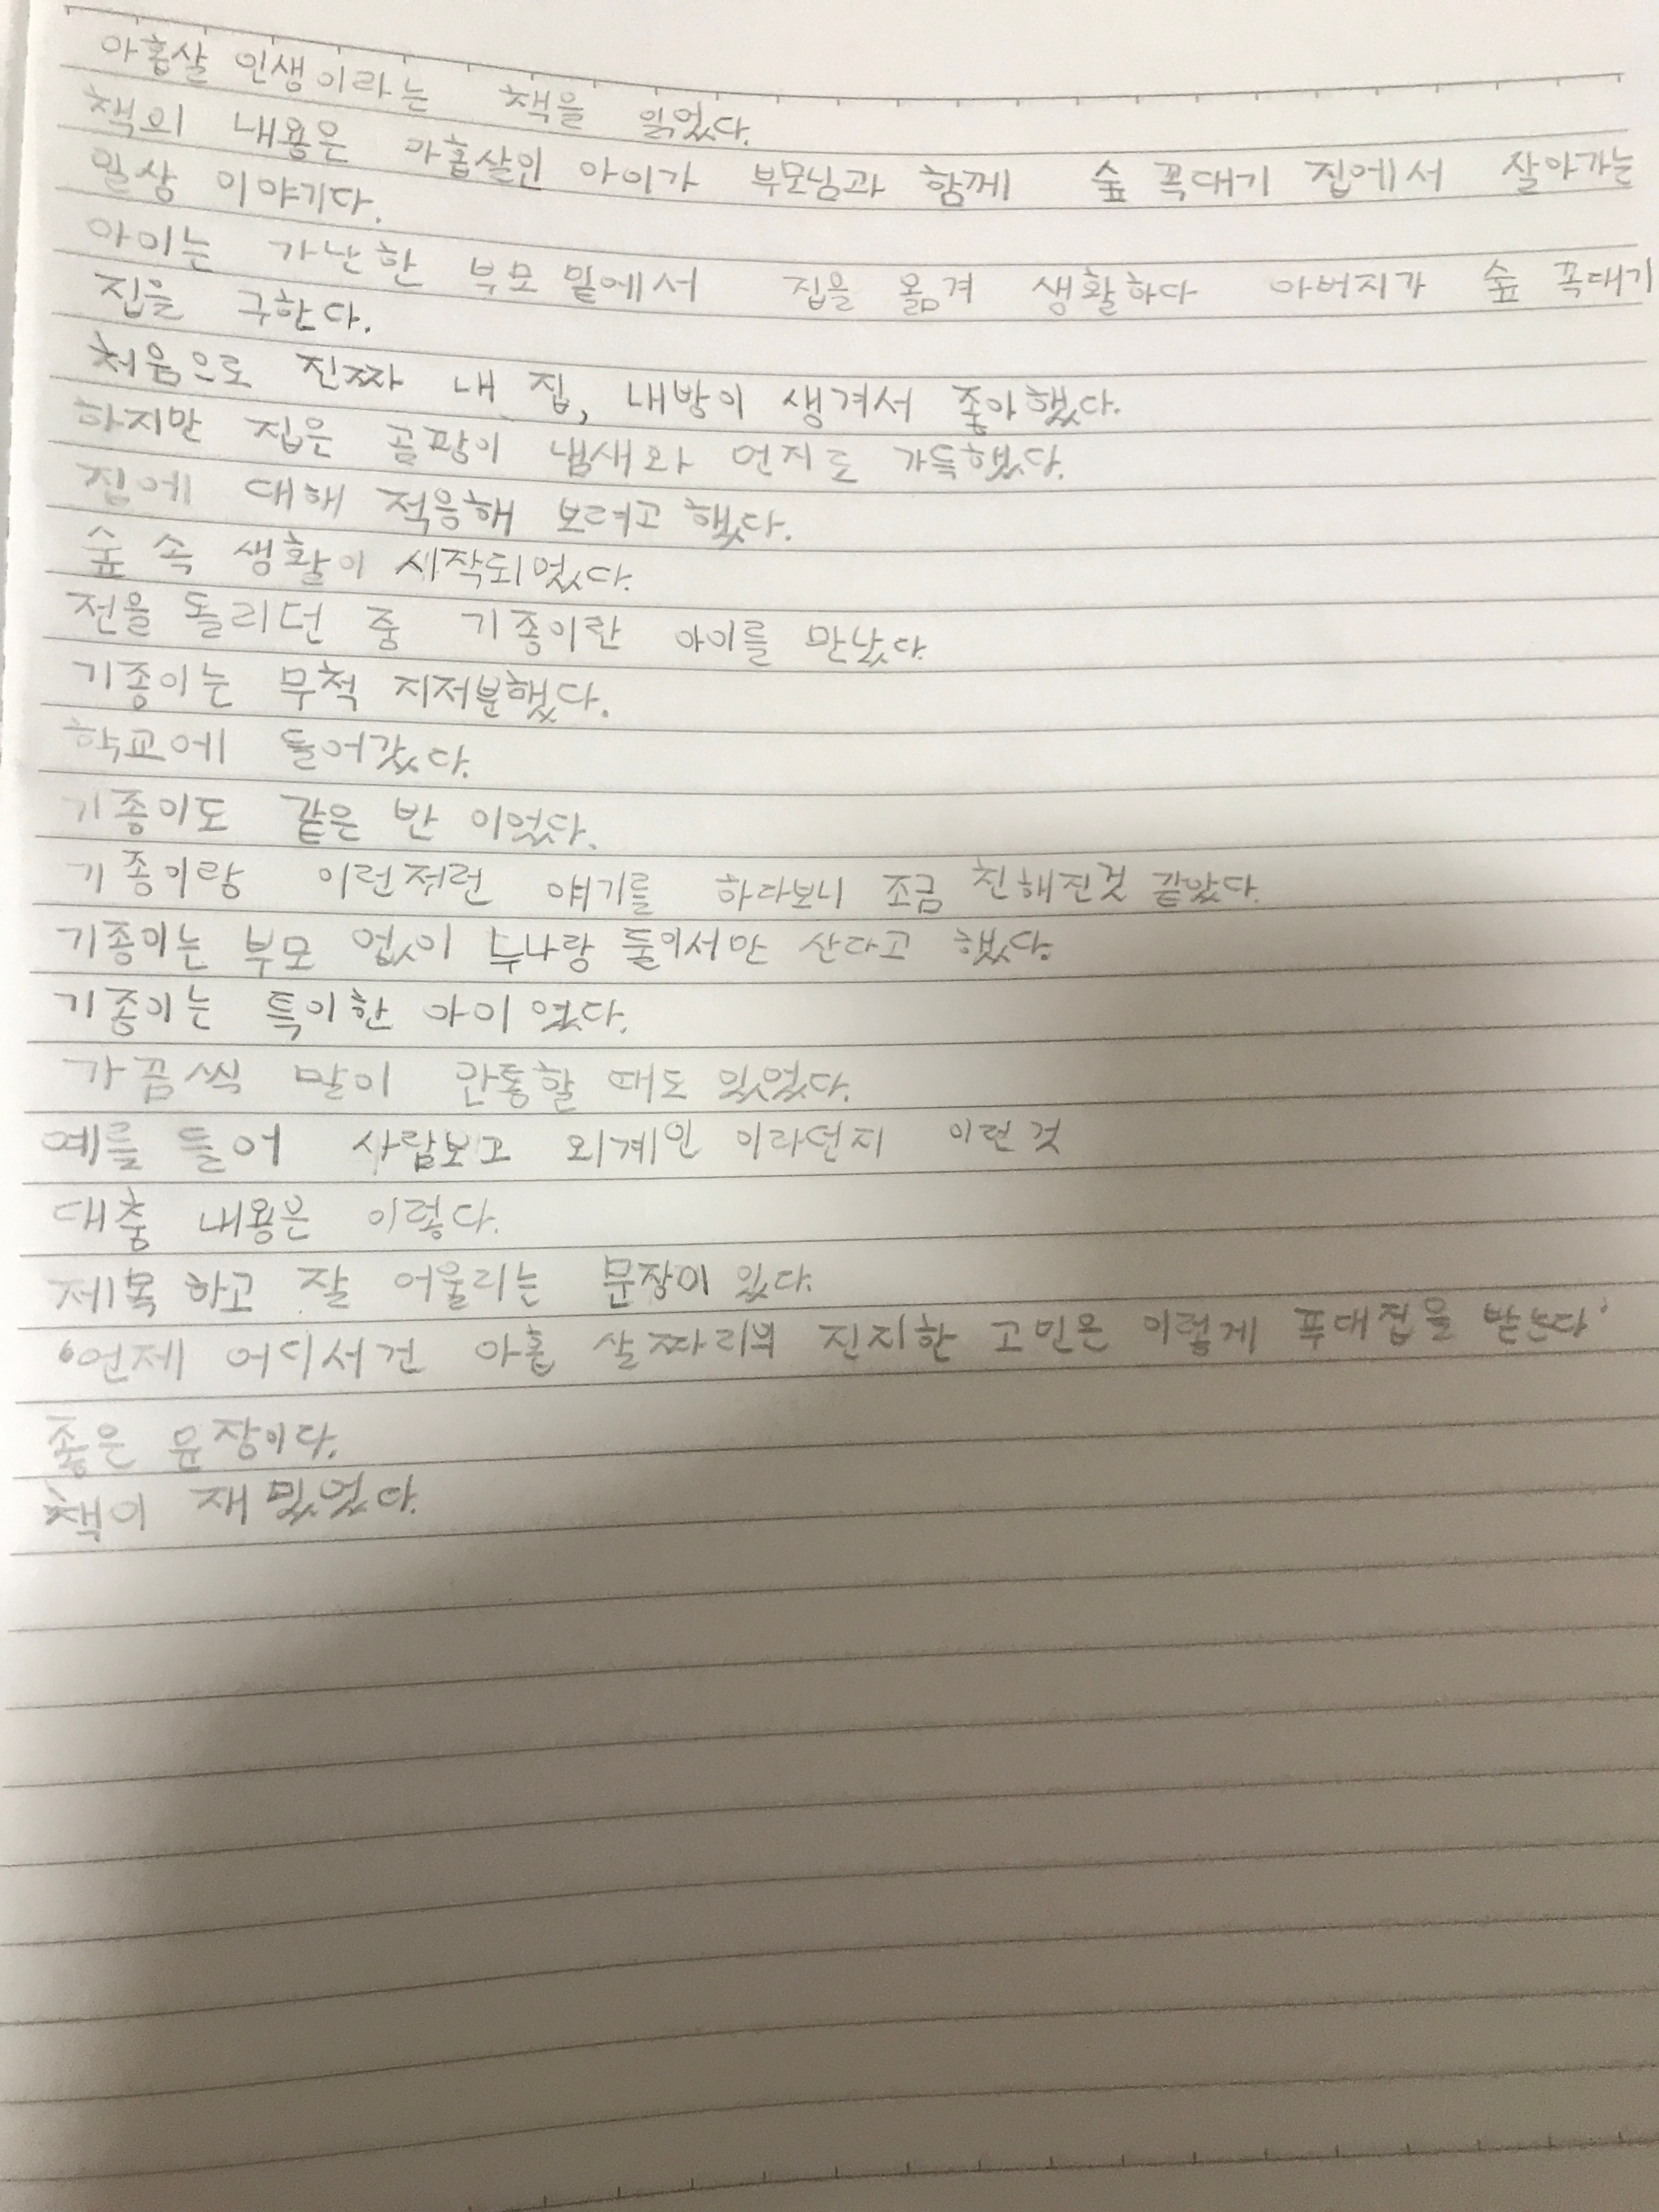 아홉살 인생이라는 책을 읽었다.
책의 내용은 아홉살인 아이가 부모님과 함께 숲 꼭대기 집에서 살아가는
일상 이야기다.
아이는 가난한 부모 밑에서 집을 옮겨 생활하다 아버지가 숲 꼭대기
집을 구한다.
처음으로 진짜 내 집, 내방이 생겨서 좋아했다.
하지만 집은 곰팡이 냄새와 먼지로 가득했다.
집에 대해 적응해 보려고 했다.
숲 속 생활이 시작되었다.
전을 돌리던 중 기종이란 아이를 만났다.
기종이는 무척 지저분했다.
학교에 들어갔다.
기종이도 같은 반 이었다.
기종이랑 이런저런 얘기를 하다보니 조금 친해진것 같았다.
기종이는 부모 없이 누나랑 둘이서만 산다고 했다.
기종이는 특이한 아이 였다.
가끔씩 말이 안통할 때도 있었다.
예를 들어 사람보고 외계인 이라던지 이런 것
대충 내용은 이렇다.
제목 하고 잘 어울리는 문장이 있다.
'언제 어디서건 아홉 살짜리의 진지한 고민은 이렇게 푸대접을 받는다'
좋은 문장이다.
책이 재밌었다.